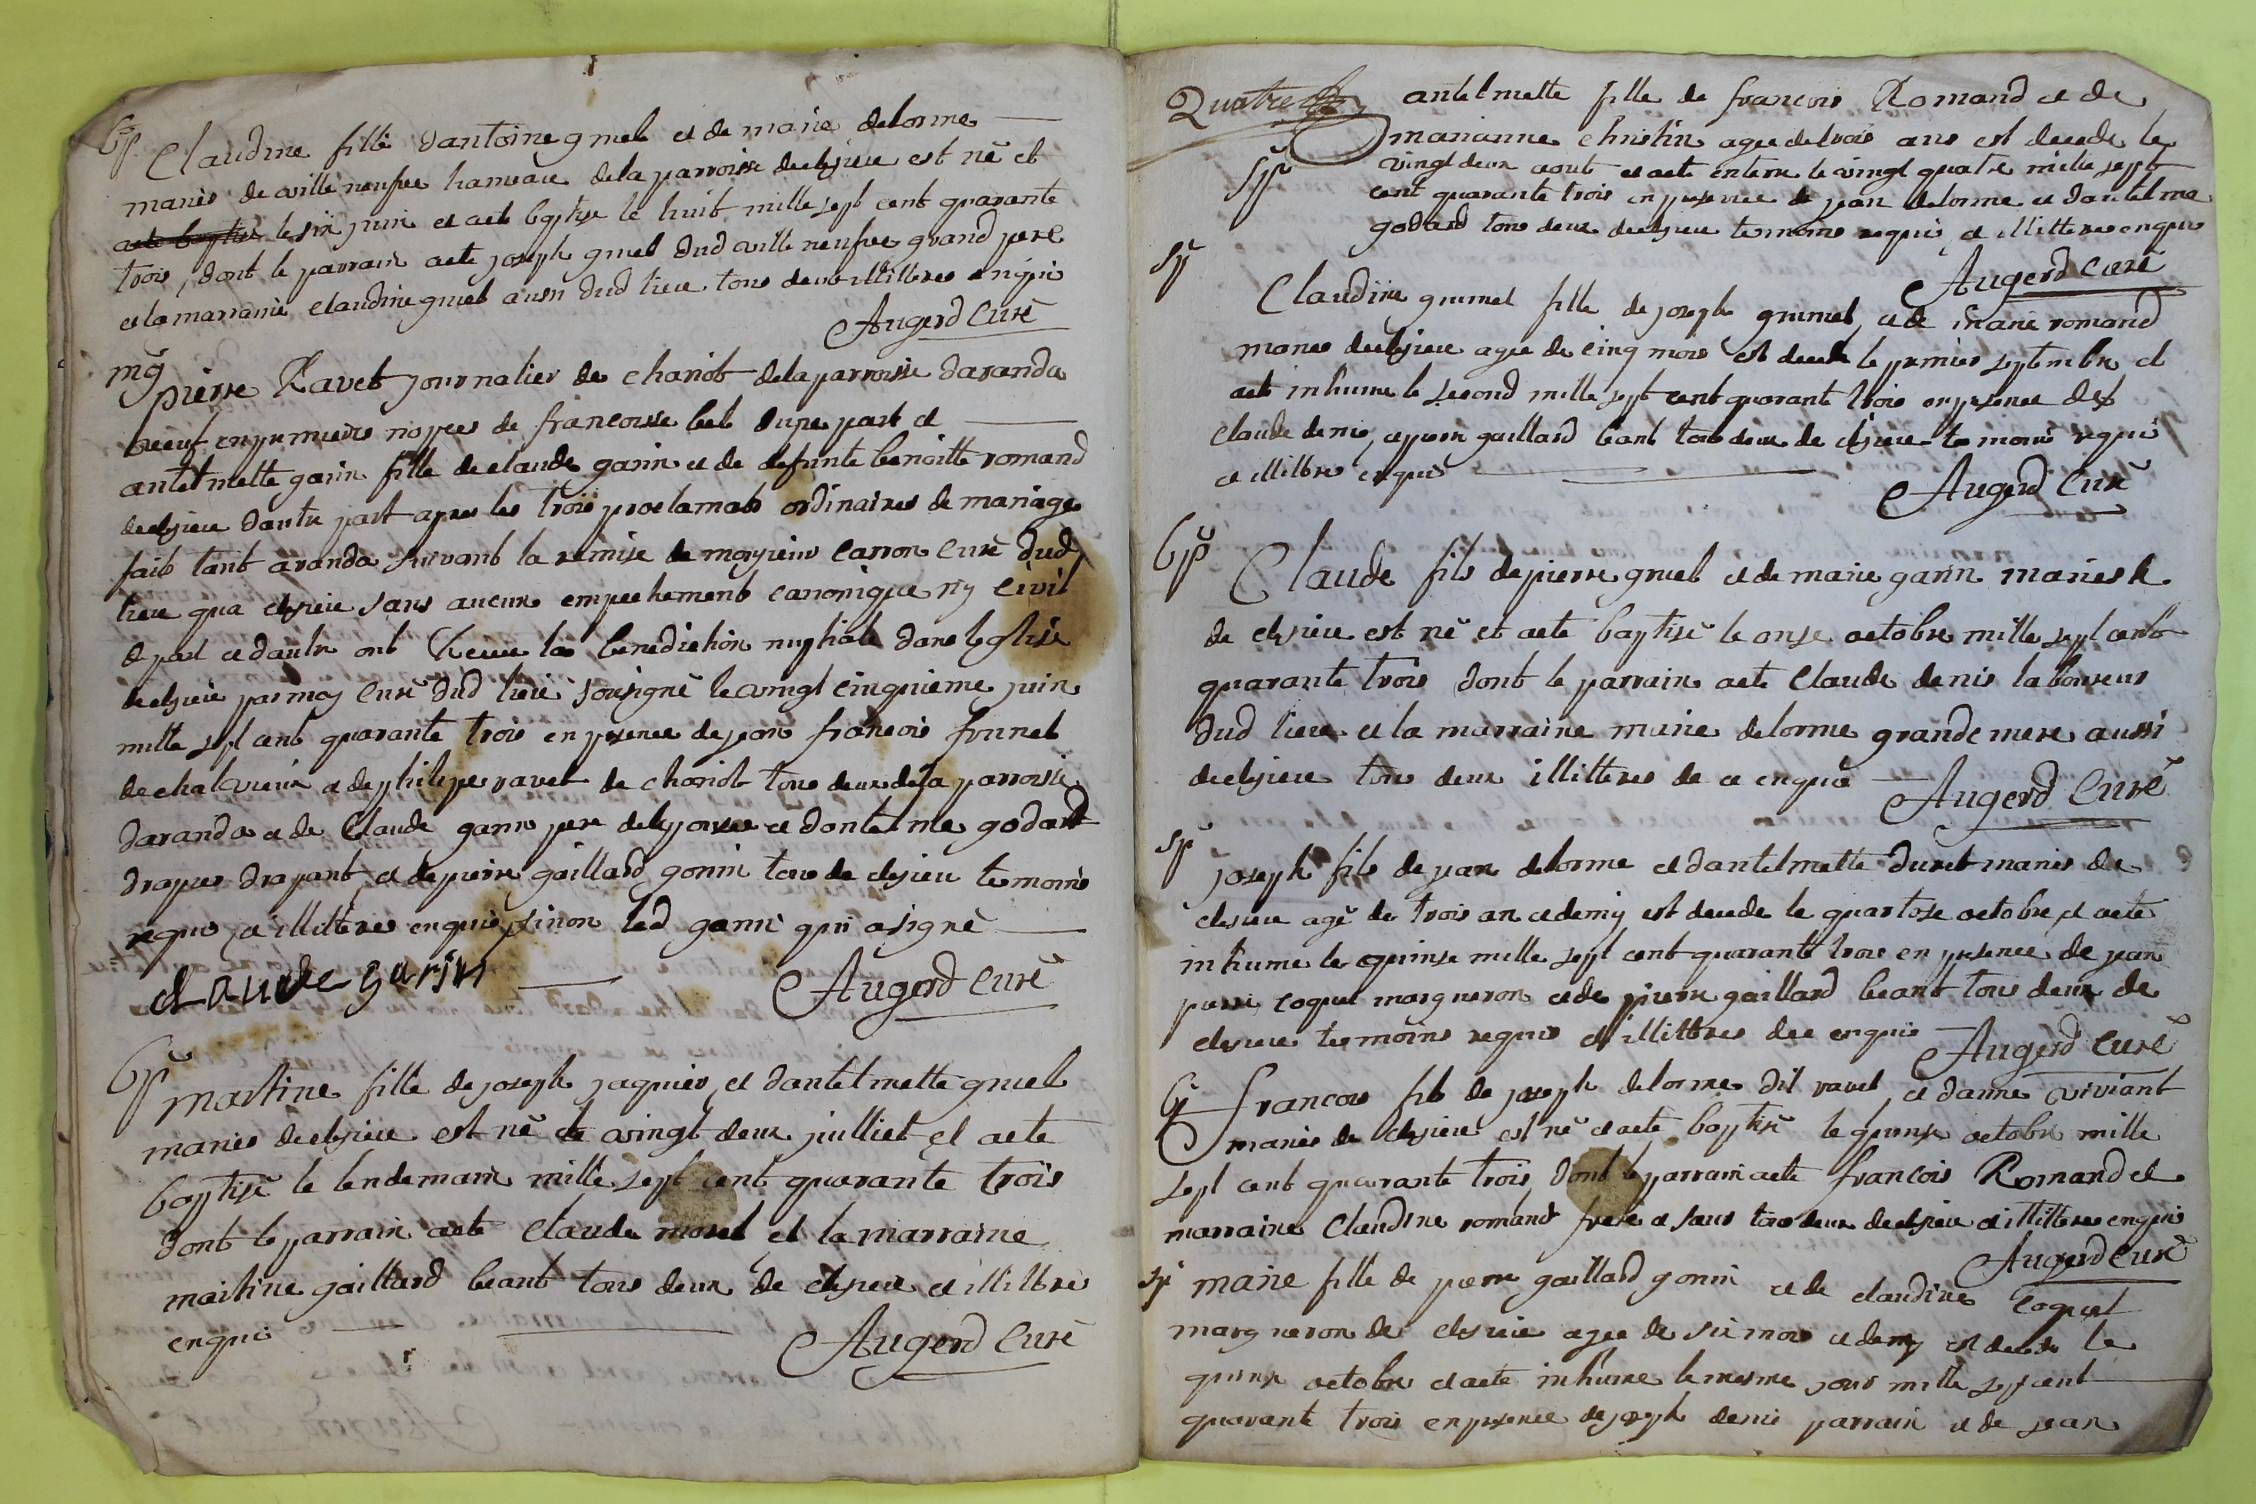 Bp
Claudine fille dantoine gruel et de marie delorme
mariés de ville neufve hameau de la parroisse declesieu est né et
a eté baptisé le six juin et a eté baptisé le huit mille sept cent quarante
trois, dont le parrain a eté joseph gruel dud ville neufve grand pere
et la marraine claudine gruel aussi dud lieu tous deux illittéres enquis
Augerd Curé
mg
pierre Ravet journalier de chariot de la parroisse daranda
veuf en premieres nopces de françoise bel dune part et
antelmette garin fille de claude garin et de defunte benoitte romand
declesieu dautre part apres les trois proclamats ordinaires de mariage
fait tant aranda suivant la remise de monsieur carron curé dud
lieu qua clesieu sans aucun empechement canonique ny civil
de part et dautre ont Receu la benediction nuptiale dans leglise
declesieu par moy curé dud lieu sousigné le vingt cinquieme juin
mille sept cent quarante trois en presence de jean françois
de et de philippe ravet de chariot tous deux de la parroisse
daranda et de Claude garin pere de lepouse et dantelme godard
drapier drapant et de pierre gaillard gonin tous de clesieu temoins
requis et illittéres enquis sinon led garin qui a signé
claude garin
Augerd Curé
Bp
martine fille de joseph jaquier et dantelmette gruel
mariés declesieu est né le vingt deux juilliet et a eté
baptisé le lendemain mille sept cent quarante trois
dont le parrain a eté claude morel et la marraine
martine gaillard beant tous deux de clesieu et illittrés
enquis
Augerd Curé
Quatre
antelmette fille de francois Romand et de
marianne christin agée de trois ans est decedé le
vingt deux aout et a eté enterré le vingt quatre mille sept
Sp
cent quarante trois en presence de jean delorme et dantelme
godard tous deux declesieu temoins requis et illittéres enquis
Augerd Curé
Sp
Claudine grumel fille de joseph grumel et de marie romand
mariés declesieu agée de cinq mois est decedé le premier septembre et
a eté inhumé le second mille sept cent quarante trois en presence de
claude denis et pierre gaillard beant tous deux de clesieu temoins requis
et illittrés enquis
Augerd Curé
Bp
Claude fils de pierre gruel et de marie garin mariés
de clesieu est né et a eté baptisé le onse octobre mille sept cent
quarante trois dont le parrain a eté Claude denis laboureur
dud lieu et la marraine marie delorme grande mere aussi
declesieu tous deux illittéres de ce enquis
Augerd Curé
Sp
joseph fils de jean delorme et dantelmette duret mariés de
clesieu agé de trois an et demy est decedé le quartose octobre et a eté
inhumé le quinse mille sept cent quarante trois en presence de jean
pierre coquet margneron et de pierre gaillard beant tous deux de
clesieu temoins requis et illittrés de ce enquis
Augerd Curé
Bp
francois fils de joseph delorme dit ravet et danne viviant
mariés de clesieu est né et a eté baptisé le quinse octobre mille
sept cent quarante trois, dont le parrain a eté francois Romand et
marraine Claudine romand frere et seur tous deux declesieu et illittéres enquis
Augerd Curé
Sp
marie fille de pierre gaillard gonin et de claudine coquet
margneron de clesieu agée de six mois et demy est decedé le
quinse octobre et a eté inhumé le mesme jour mille sept cent
quarante trois en presence de joseph denis parrain et de jean